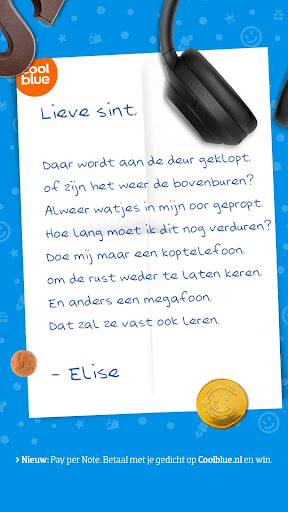 cool
blue
Lieve sint,
Daar wordt aan de deur geklopt,
of zijn het weer de bovenburen?
Alweer watjes in mijn oor gepropt.
Hoe lang moet ik dit nog verduren?
Doe mij maar een koptelefoon
om de rust weder te laten keren.
En anders een megafoon.
Dat zal ze vast ook leren.
- Elise
> Nieuw: Pay per Note. Betaal met je gedicht op Coolblue.nl en win.